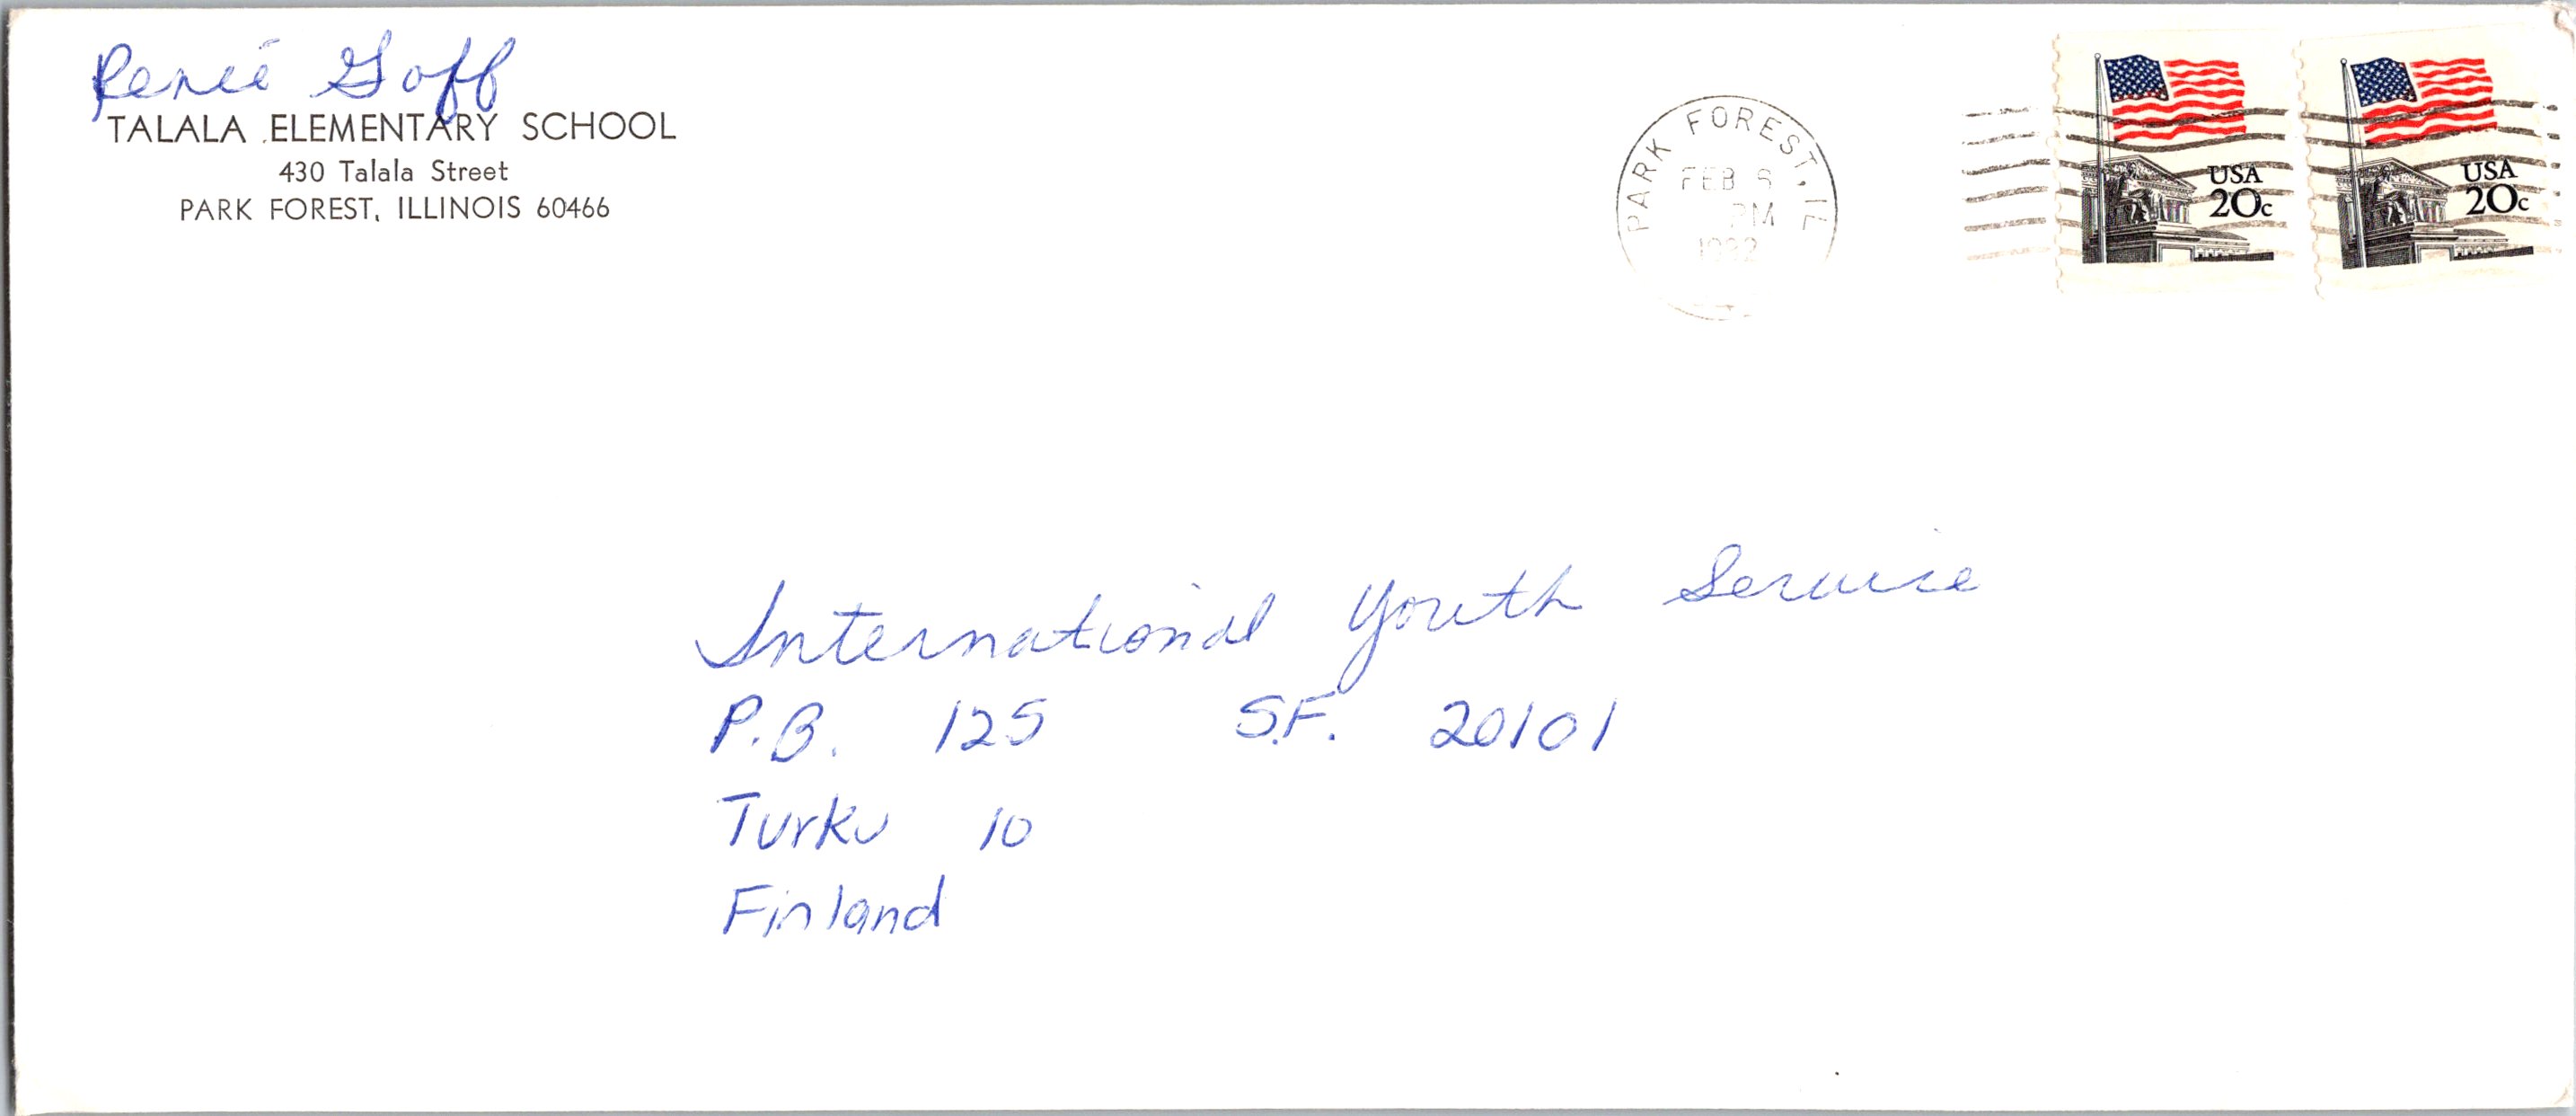 Reneé Goff
TALALA ELEMENTARY SCHOOL
430 Talala Street
PARK FOREST, ILLINOIS 60466
PARK FOREST, IL
FEB
PM
USA
20c
USA
20c
International Youth Service
P.B. 125 S.F. 20101
Turku 10
Finland